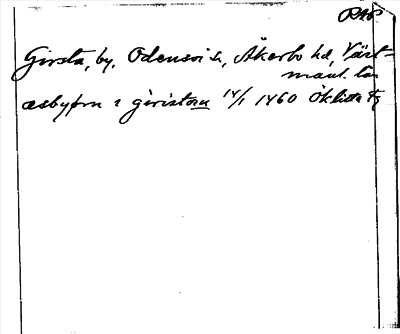 RAP
Girsta, by, Odensvi sn, Åkerbo hd, Väst-
manl. län
æsbyørn i giristom 14/1 1460